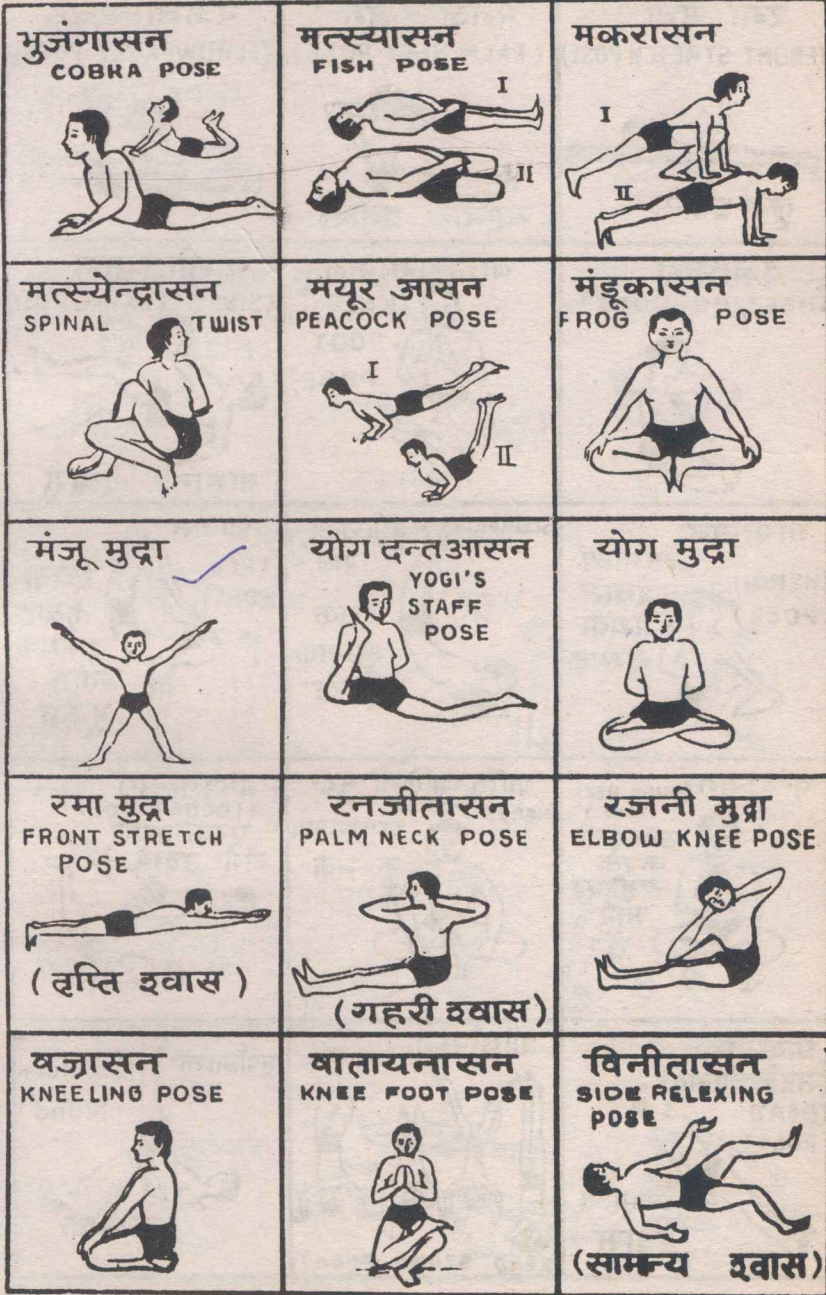 भुजंगासन
COBRA POSE
मत्स्यासन
FISH POSE
I
II
मकरासन
I
II
मत्स्येन्द्रासन
SPINAL TWIST
मयूर आसन
PEACOCK POSE
I
II
मंडूकासन
FROG POSE
मंजू मुद्रा
योग दन्तआसन
YOGI'S
STAFF
POSE
योग मुद्रा
रमा मुद्रा
FRONT STRETCH
POSE
(तृप्ति श्वास)
रनजीतासन
PALM NECK POSE
(गहरी श्वास)
रजनी मुद्रा
ELBOW KNEE POSE
वज्रासन
KNEELING POSE
वातायनासन
KNEE FOOT POSE
विनीतासन
SIDE RELEXING
POSE
(सामन्य श्वास)